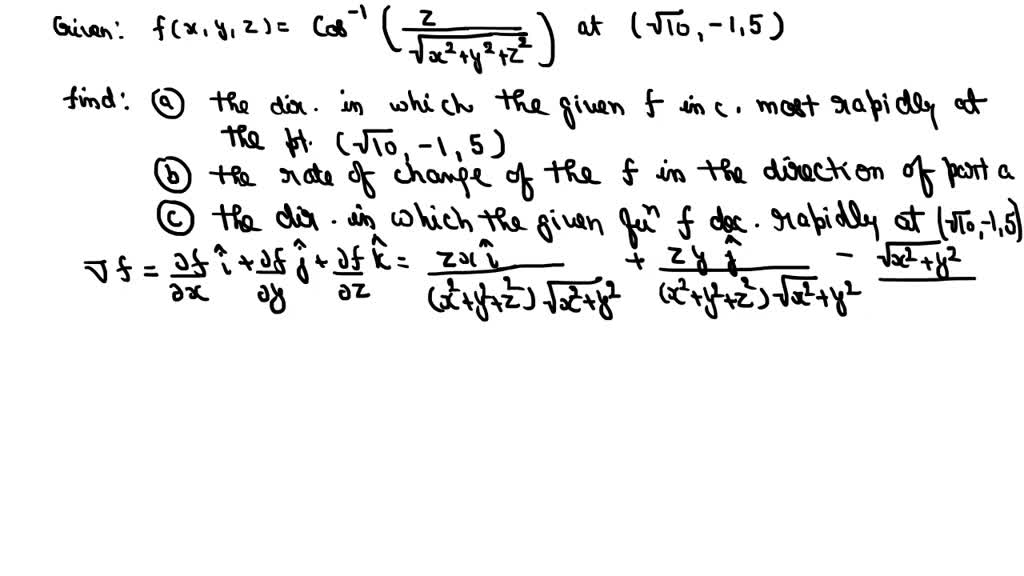 Given: f(x, y, z) = Cos⁻¹ ( z / √(x²+y²+z²) ) at (√10, -1, 5)
find: ⓐ the dir. in which the given f inc. most rapidly at
the pt. (√10, -1, 5)
ⓑ the rate of change of the f in the direction of part a
ⓒ the dir. in which the given fuⁿ f dec. rapidly at (√10, -1, 5)
∇f = ∂f/∂x î + ∂f/∂y ĵ + ∂f/∂z k̂ = zx î / (x²+y²+z²)√(x²+y²) + zy ĵ / (x²+y²+z²)√(x²+y²) - √(x²+y²)